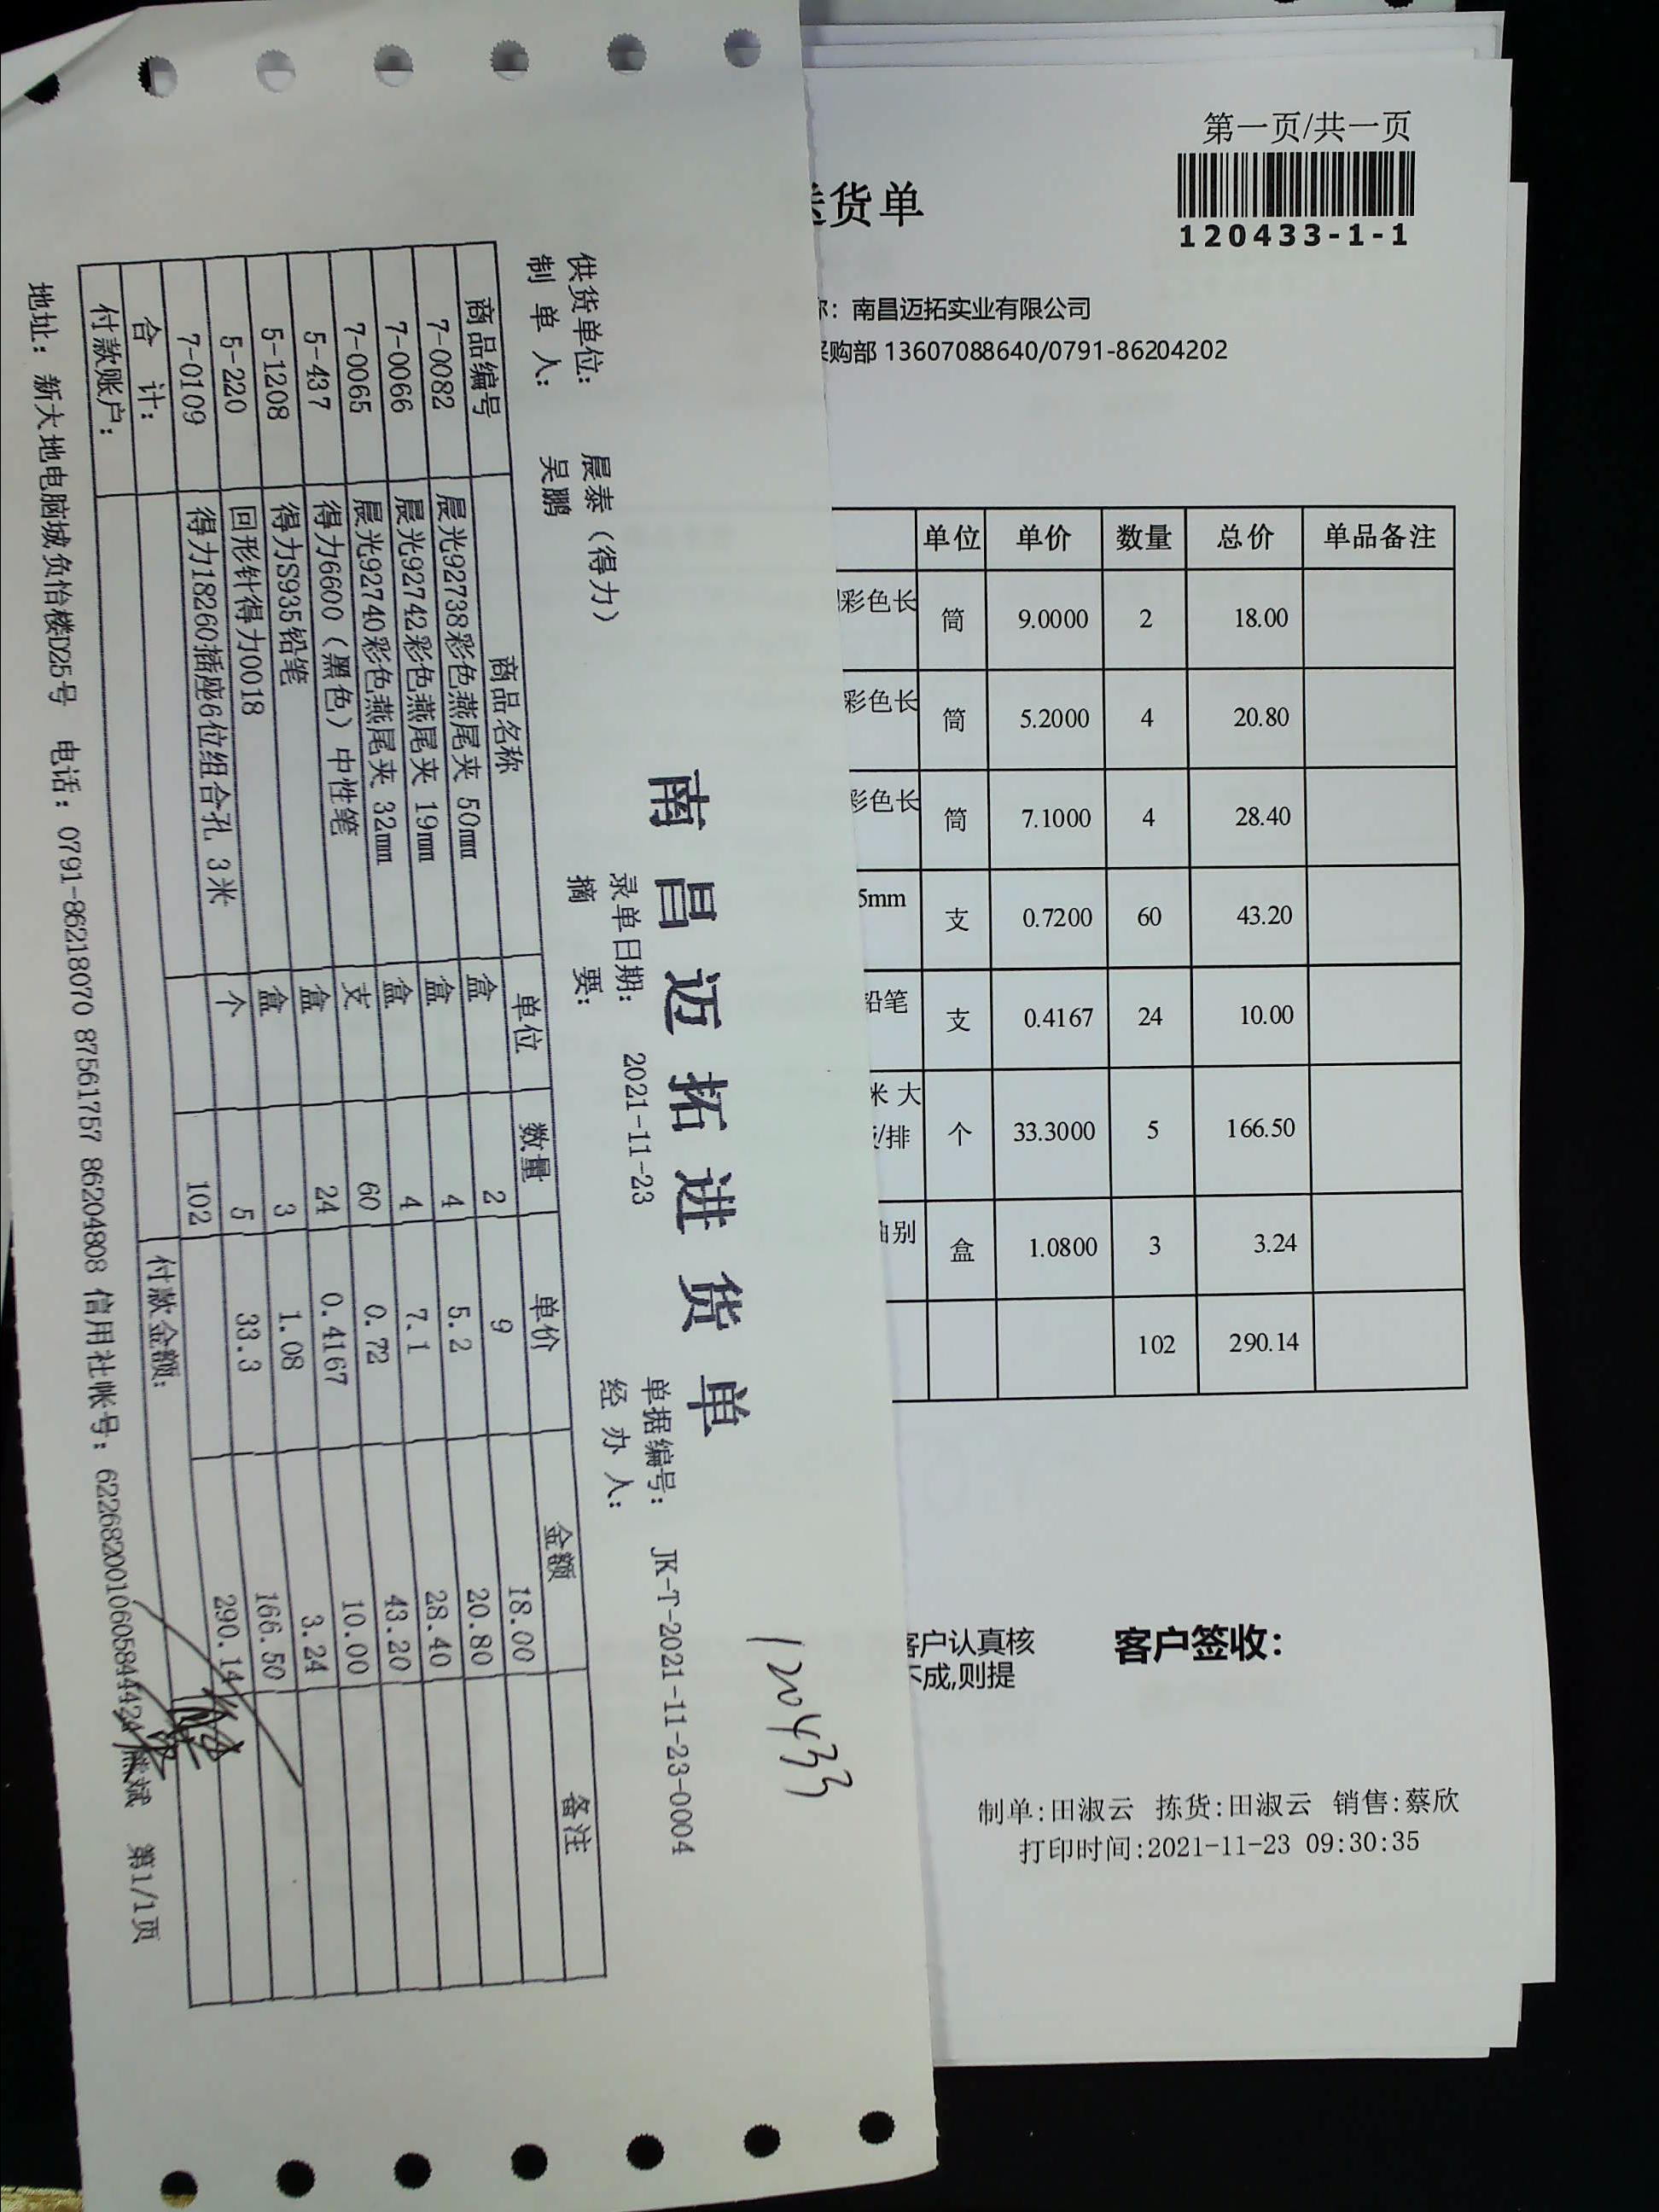 南昌迈拓进货单
120433
供货单位: 晨泰（得力） 录单日期: 2021-11-23 单据编号: JK-T-2021-11-23-0004
制 单 人: 吴鹏 摘 要: 经 办 人:
商品编号 商品名称 单位 数量 单价 金额 备注
7-0082 晨光92738彩色燕尾夹 50mm 盒 2 9 18.00
7-0066 晨光92742彩色燕尾夹 19mm 盒 4 5.2 20.80
7-0065 晨光92740彩色燕尾夹 32mm 盒 4 7.1 28.40
5-437 得力6600（黑色）中性笔 支 60 0.72 43.20
5-1208 得力S935铅笔 盒 24 0.4167 10.00
5-220 回形针得力0018 盒 3 1.08 3.24
7-0109 得力18260插座6位组合孔 3米 个 5 33.3 166.50
合 计: 102 290.14
付款账户: 付款金额:
地址: 新大地电脑城负怡楼D25号 电话: 0791-86218070 87561757 86204808 信用社帐号: 6226820010605844424 熊斌 第1/1页
第一页/共一页
120433-1-1
送货单
: 南昌迈拓实业有限公司
采购部 13607088640/0791-86204202
单位 单价 数量 总价 单品备注
彩色长 筒 9.0000 2 18.00
彩色长 筒 5.2000 4 20.80
彩色长 筒 7.1000 4 28.40
5mm 支 0.7200 60 43.20
铅笔 支 0.4167 24 10.00
米 大
/排 个 33.3000 5 166.50
别 盒 1.0800 3 3.24
102 290.14
客户认真核
不成,则提
客户签收:
制单:田淑云 拣货:田淑云 销售:蔡欣
打印时间:2021-11-23 09:30:35